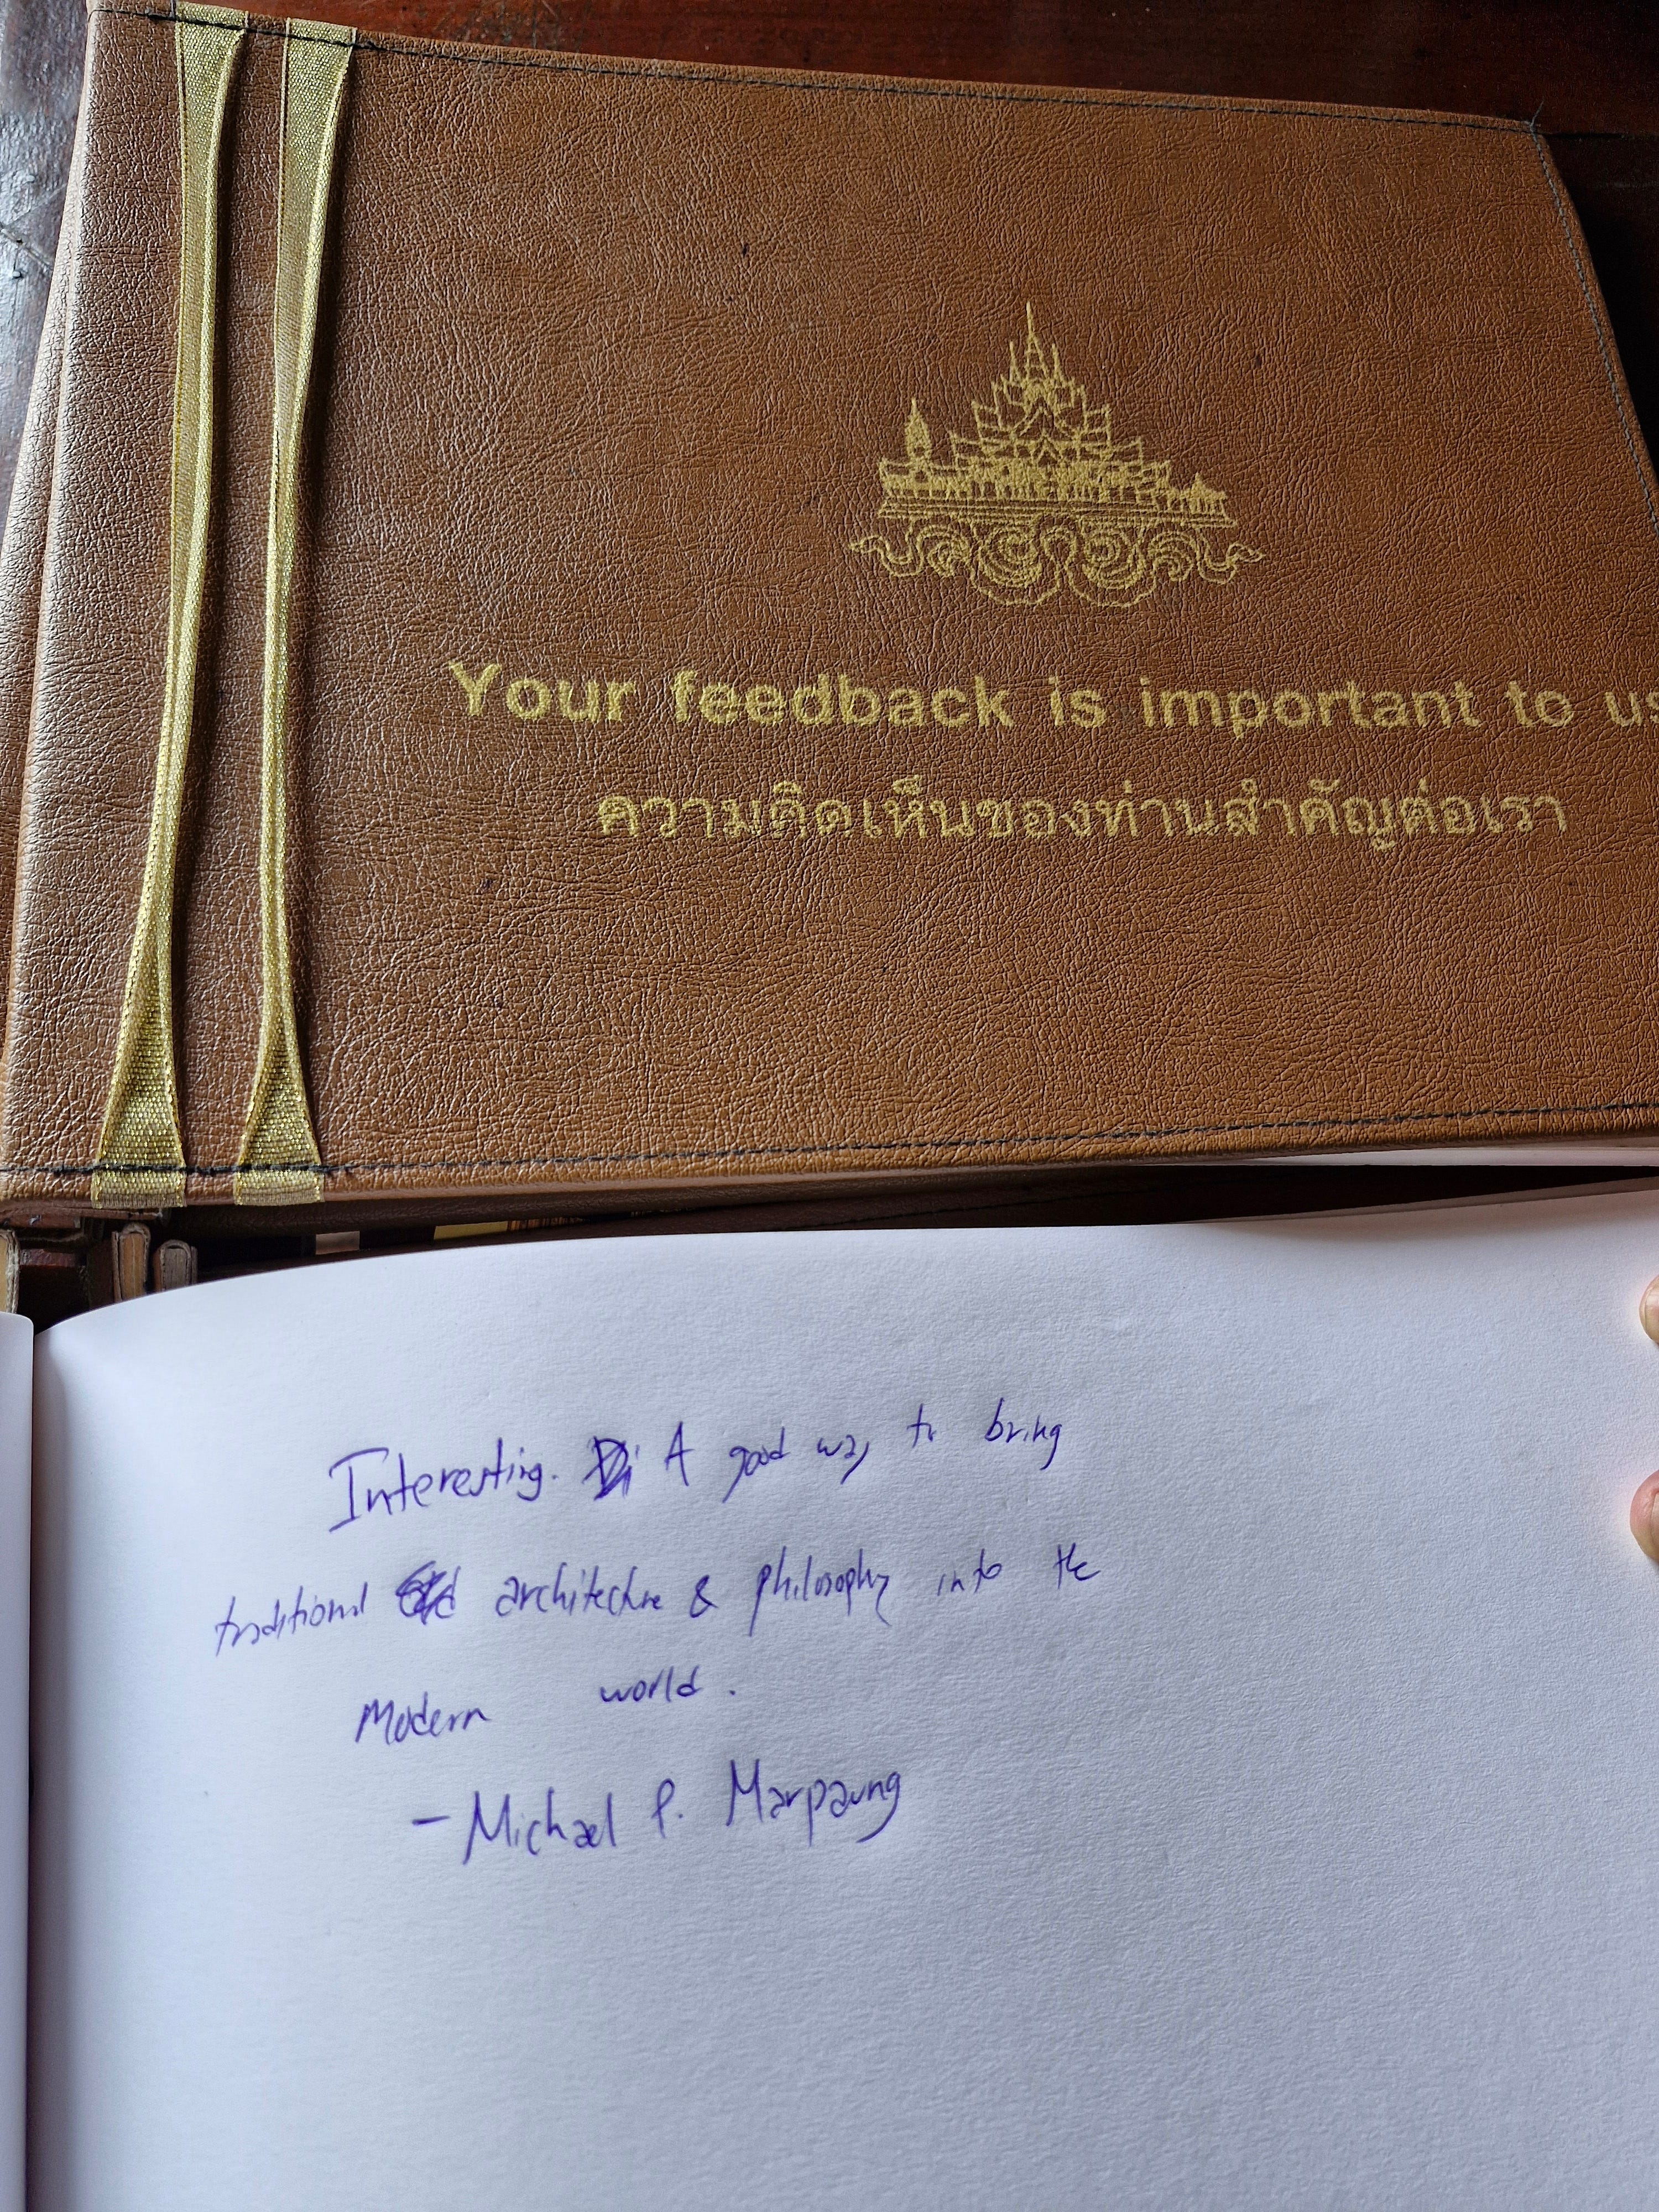 Your feedback is important to us
ความคิดเห็นของท่านสำคัญต่อเรา
Interesting. A good way to bring
traditional architecture & philosophy into the
Modern world.
- Michael P. Marpaung